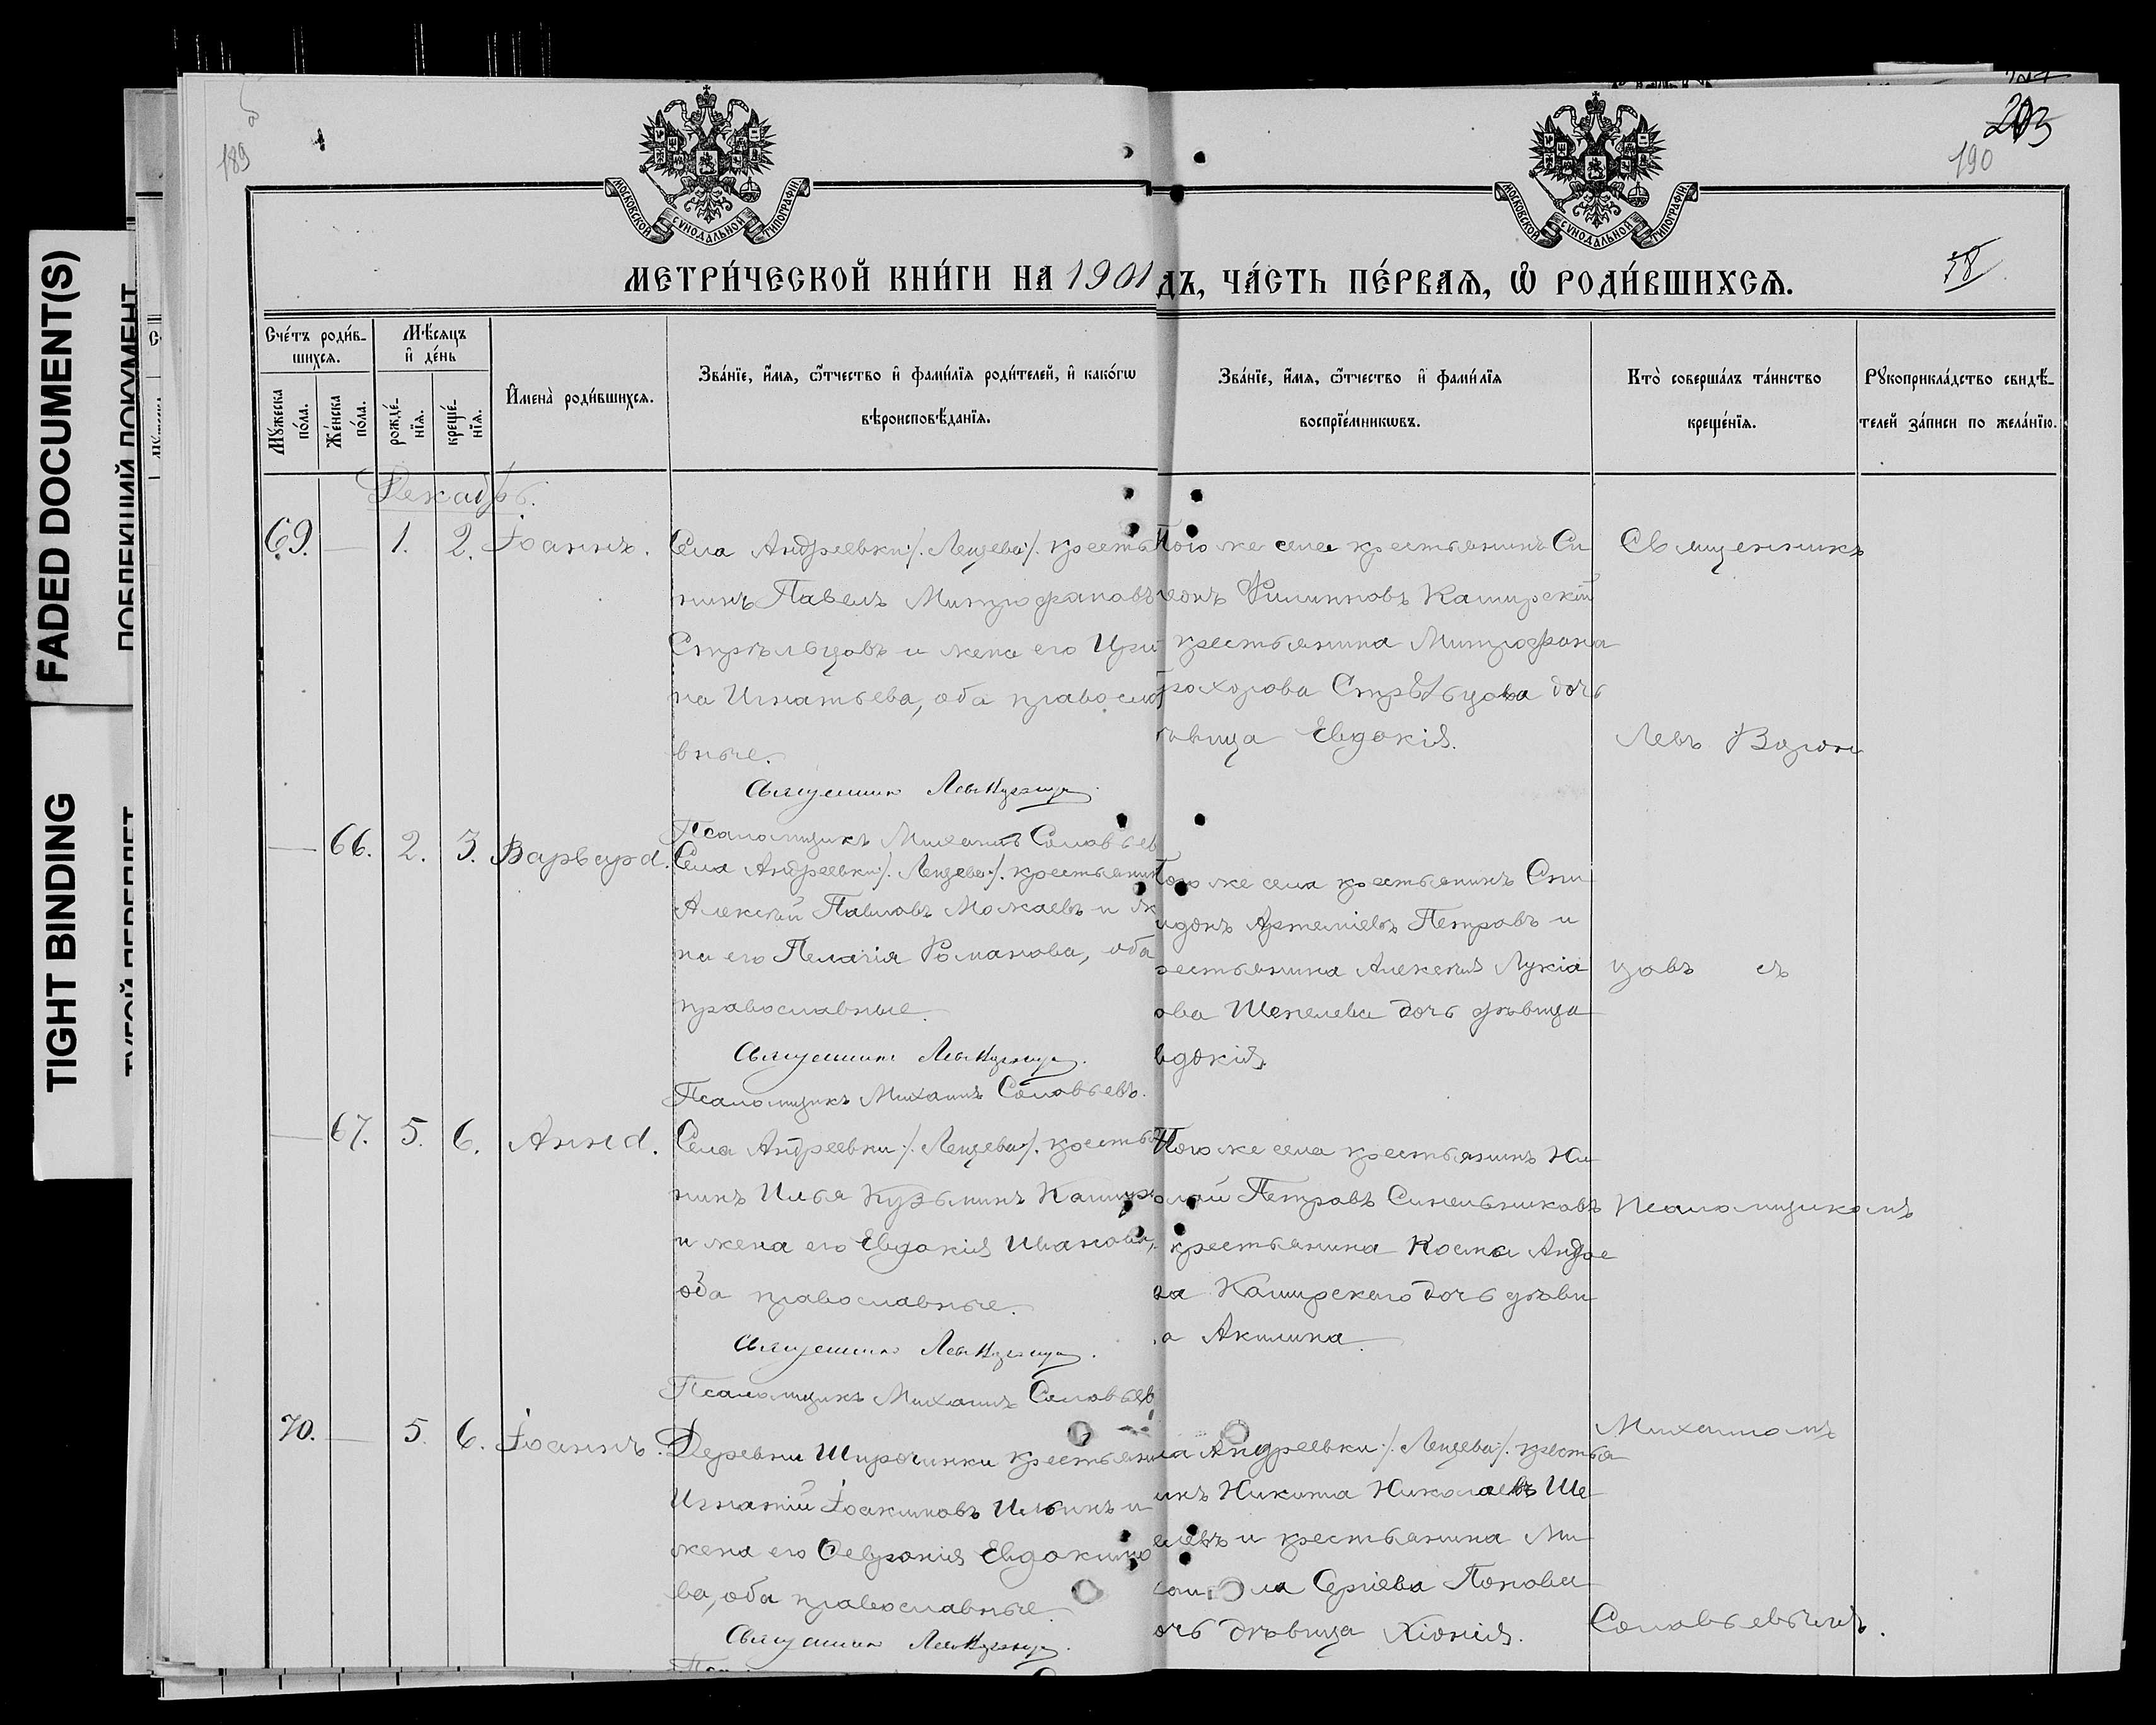 FADED DOCUMENT(S)
TIGHT BINDING
189
190
203
78
МОСКОВСКОЙ СѴНОДАЛЬНОЙ ТИПОГРАФІИ
МОСКОВСКОЙ СѴНОДАЛЬНОЙ ТИПОГРАФІИ
МЕТРИ́ЧЕСКОЙ КНИ́ГИ НА 1901
ДЪ, ЧА́СТЬ ПЕ́РВАЯ, Ѡ РОДИ́ВШИХСЯ.
Сче́тъ роди́в-
шихся.
Мѣ́сяцъ
и де́нь
Му́жеска по́ла.
Же́нска по́ла.
рожде́-
нїя.
креще́-
нїя.
Имена̀ роди́вшихся.
Зва́нїе, и́мя, ѻ҆́тчество и фами́лїя роди́телей, и како́гѡ
вѣроисповѣ́данїя.
Зва́нїе, и́мя, ѻ҆́тчество и фами́лїя
воспрїе́мникѡвъ.
Кто̀ соверша́лъ та́инство
креще́нїя.
Рꙋкоприкла́дство свидѣ́-
телей за́писи по жела́нїю.
Декабрь.
69. — 1. 2. Іоаннъ.
Села Андреевки /. Лещева /. кресть
нинъ Павелъ Митрофановъ
Стрѣльцовъ и жена его Ири
на Игнатьева, оба правосла
вные.
Священникъ Левъ
Псаломщикъ Михаилъ Соловьев
Того же села крестьянинъ Си
еонъ Филипповъ Каширскій
крестьянина Митрофана
рохорова Стрѣльцова дочь
ѣвица Евдокія.
Священникъ
Левъ
— 66. 2. 3. Варвара.
Села Андреевки /. Лещева /. крестьянин
Алексѣй Павловъ Можаевъ и ж
на его Пелагія Романова, оба
православные.
Священникъ Левъ
Псаломщикъ Михаилъ Соловьевъ.
Того же села крестьянинъ Спи
идонъ Артеміевъ Петровъ и
рестьянина Алексѣя Лукіа
ова Шепелева дочь дѣвица
вдокія.
цовъ съ
— 67. 5. 6. Анна.
Села Андреевки /. Лещева /. кресть
нинъ Илья Кузьминъ Кашир
и жена его Евдокія Иванова,
оба православные.
Священникъ Левъ
Псаломщикъ Михаилъ Соловьев
Того же села крестьянинъ Ни
олай Петровъ Синельниковъ
крестьянина Космы Андре
ва Каширскаго дочь дѣви
а Акилина.
псаломщикомъ
70. — 5. 6. Іоаннъ.
Деревни Широчинки крестьяни
Игнатій Іоакимовъ Ильинъ и
жена его Ѳевронія Евдокимо
ва, оба православные.
Священникъ Левъ
ла Андреевки /. Лещева /. крестья
инъ Никита Николаевъ Ше
елевъ и крестьянина Ми
ла Сергіева Попова
очь дѣвица Хіонія.
Михаиломъ
Соловьевымъ.